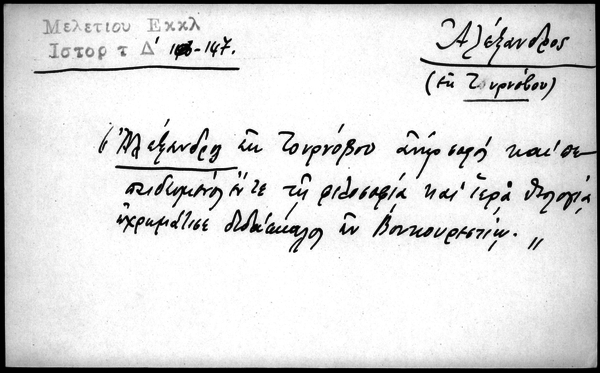 Μελετιου Εκκλ
Ιστορ τ Δ' -147.
Ἀλέξανδρος
(ἐκ Τουρνόβου)
Ἀλέξανδρος ἐκ Τουρνόβου ἀνήρ σοφός καί πε
παιδευμένος ἔν τε τῇ φιλοσοφίᾳ καί ἱερᾷ θεολογίᾳ
ἐχρημάτισε διδάσκαλος ἐν Βουκουρεστίῳ. "